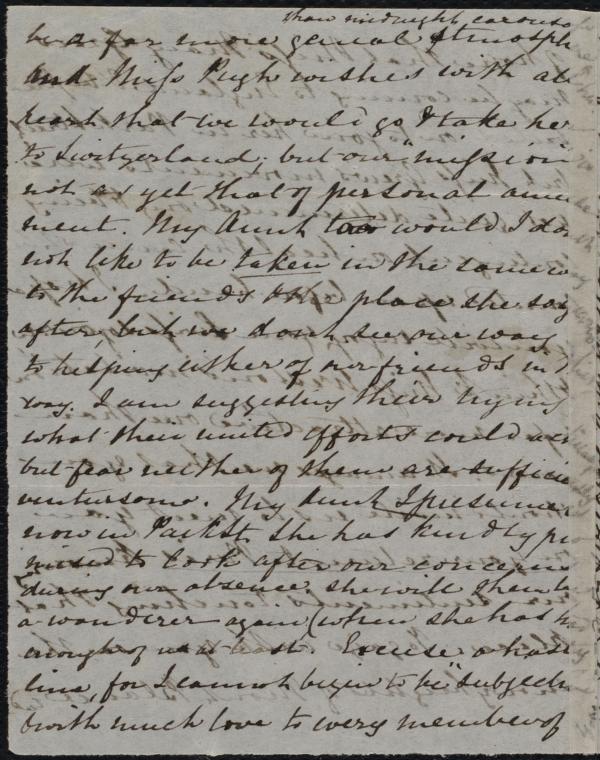 than midnight carouso
be a far more genial Atmosph
and Miss Pugh wishes with al
heart that we would go & take he
to Switzerland; but our "mission
not as yet that of personal amu
ment. My Aunt too would I do
not like to be taken in the same w
to the friends & the place she say
after, but we don't see our way
to helping either of our friends in
way. I am suggesting their trying
what their united efforts could
but fear neither of them are sufficie
venturesome. My Aunt I presume
now in Park St. She has kindly pro
mised to look after our concerns
during our absence. she will then be
a wanderer again (when she has h
enough of us at least. Excuse a hast
line, for I cannot begin to be "subject
& with much love to every member of